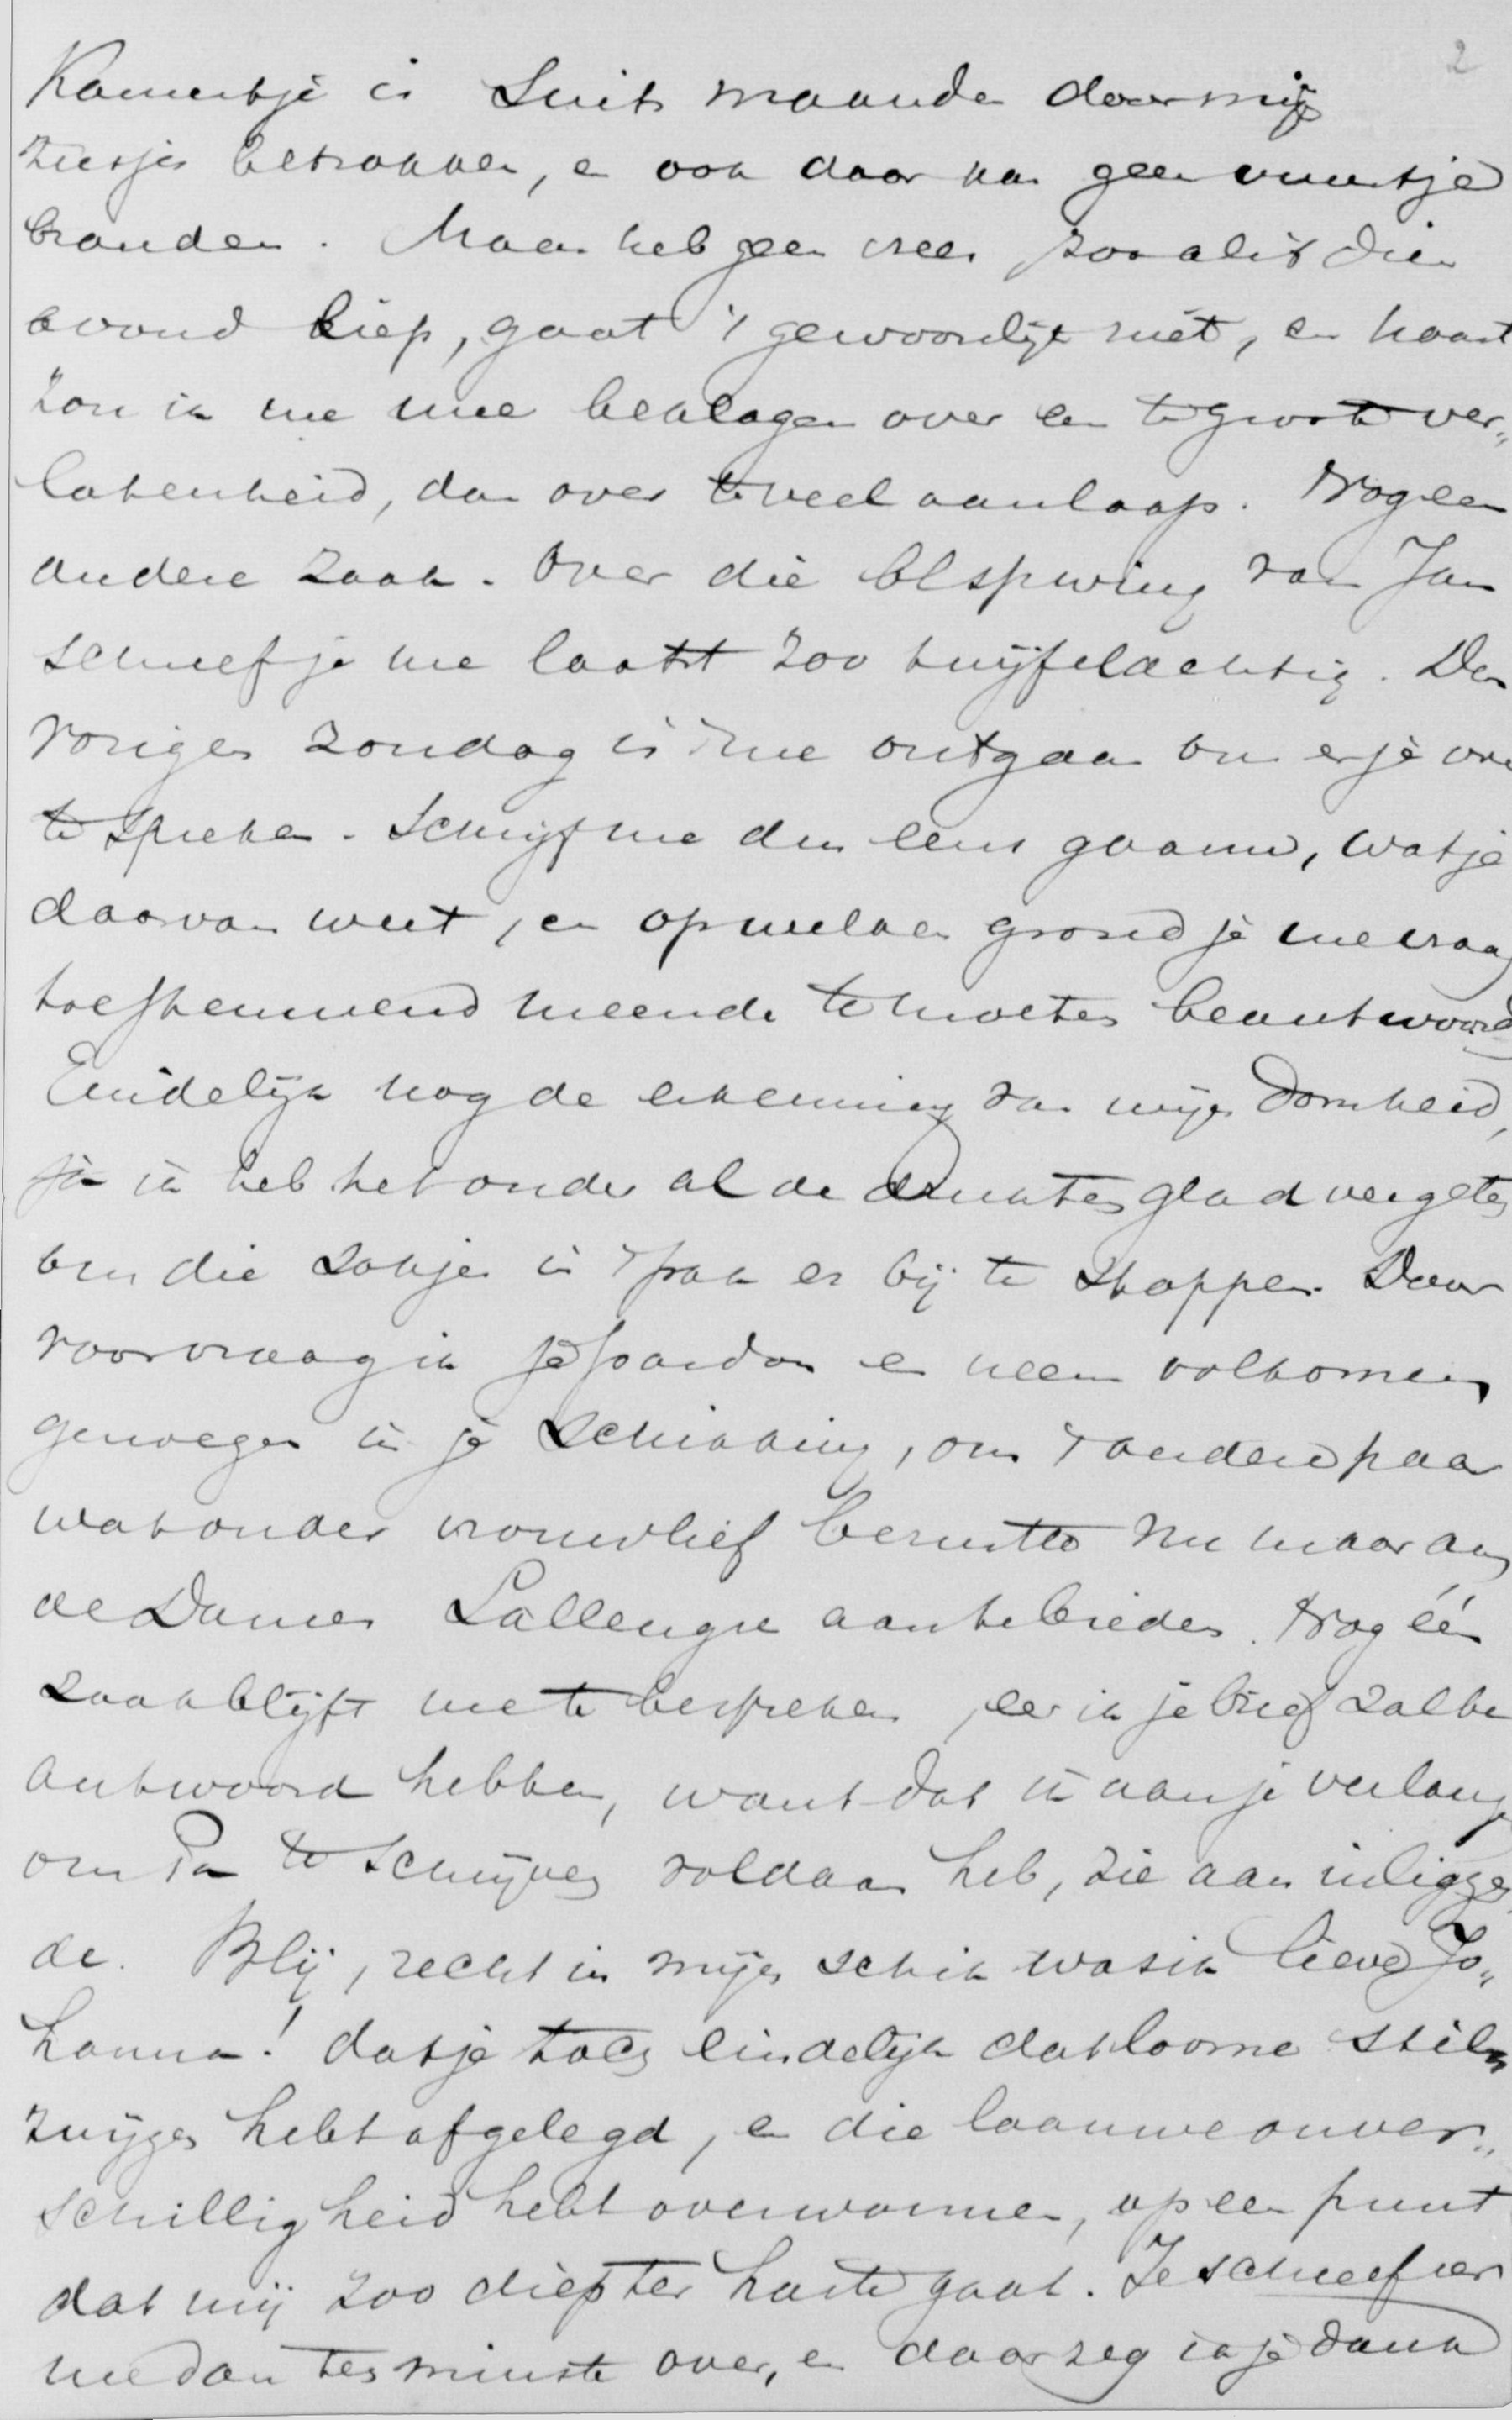 2
Kamertje is Sints maanden door mijn
zusjes betrokken, en ook daar kan geen vuurtje
branden. Maar heb geen vrees zooals 't dien
avond liep, gaat 't gewoonlijk niet, en haast
zou ik me mee beklagen over een te groote ver„
latenheid, dan over te veel aanloop. Nog een
andere zaak. Over die blspuwing van Jan
schreef je me laatst zoo twijfelachtig. Den
vorigen zondag is 't me ontgaan om er je over
te spreken. Schrijf me den eens gaauw, wat je
daarvan weet, en op welken grond je me vraag
toestemmend meende te moeten beantwoord
Eindelijk nog de erkenning van mijn Domheid,
ja ik heb het onder al de drukte glad vergeten
om die zakjes in 't pak er bij te stoppen. Daar
voor vraag ik je pardon en neem volkomen
genoegen in je schikking, om 't andere paar
wat onder vrouwlief berustte nu maar aan
de Dames Lallengre aan te bieden. Nog één
zaak blijft me te bespreken, eer ik je brief zal be
antwoord hebben, want dat ik aan je verlang
om Pa te schrijven voldaan heb, zie aan inliggen
de. Blij, recht in mijn schik was ik lieve Jo„
hanna! dat je toch eindelijk dat loome stil„
zwijgen hebt afgelegd, en die laauwe onver„
schilligheid hebt overwonnen, op een punt
dat mij zoo diep ter harte gaat. Je schreef er
me dan ten minste over, en daar zeg ik je dank